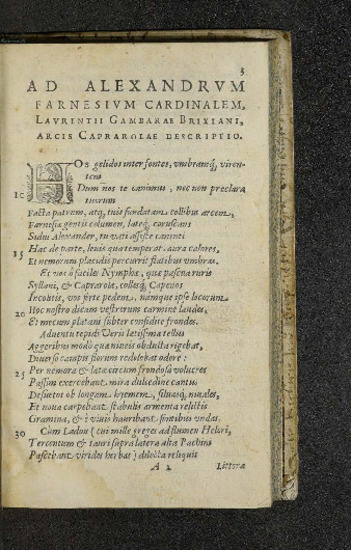 5
AD ALEXANDRVM
FARNESIVM CARDINALEM,
LAVRENTII GAMBARAE BRIXIANI,
ARCIS CAPRAROLAE DESCRIPTIO.
HOs gelidos inter fontes, vmbramq́, viren-
tem
Dum nos te canimus, nec non præclara
10 tuorum
Facta patrum, atq́, tuis fundatam collibus arcem,
Farnesiæ gentis columen, lateq́, coruscans
Sidus Alexander, tu vati assiste canenti
15 Hac de parte, leuis qua temperat aura calores,
Et nemorum placidis percurrit flatibus vmbras.
Et vos ò faciles Nymphæ, quæ pascua ruris
Syllani, & Caprarolæ, collesq́, Capenos
Incolitis, vos ferte pedem, namque ipse locorum
20 Hoc nostro dicam vestrorum carmine laudes,
Et mecum platani subter considite frondes.
Aduentu tepidi Veris lætissima tellus
Aggeribus modò quæ niueis obducta rigebat,
Diuerso campis florum redolebat odore:
25 Per nemora & latè circum frondosa volucres
Passim exercebant mira dulcedine cantus
Desuetos ob longam hyemem, siluasq́, niuales,
Et noua carpebant stabulis armenta relictis
Gramina, & è viuis hauribant fontibus vndas.
30 Cùm Ladon (cui mille greges ad flumen Helori,
Tercentum & tauri supra latera alta Pachini
Pascebant virides herbas) dilecta reliquit
A 2 Littora